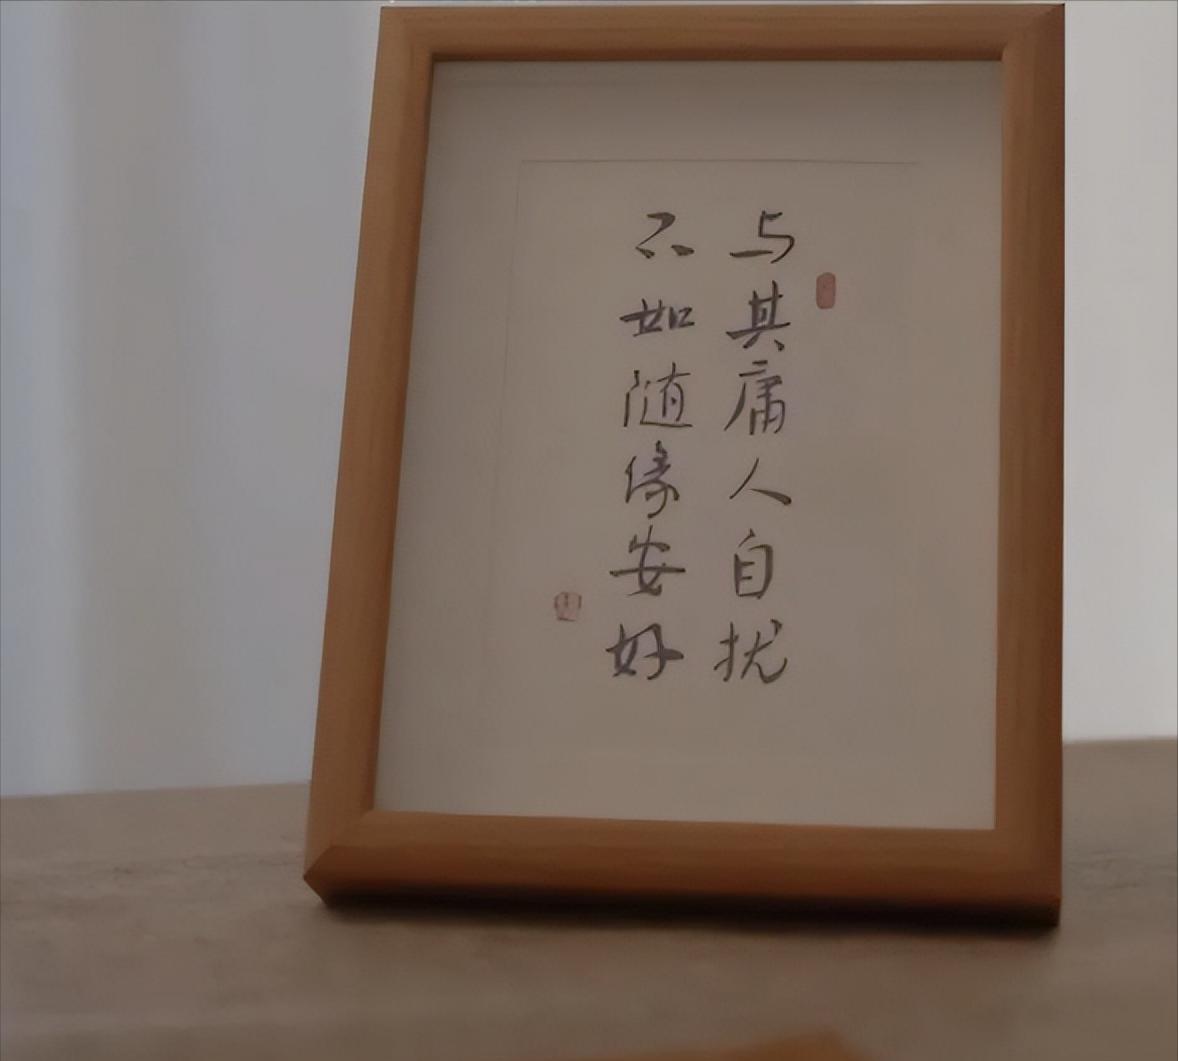 与其庸人自扰
不如随缘安好